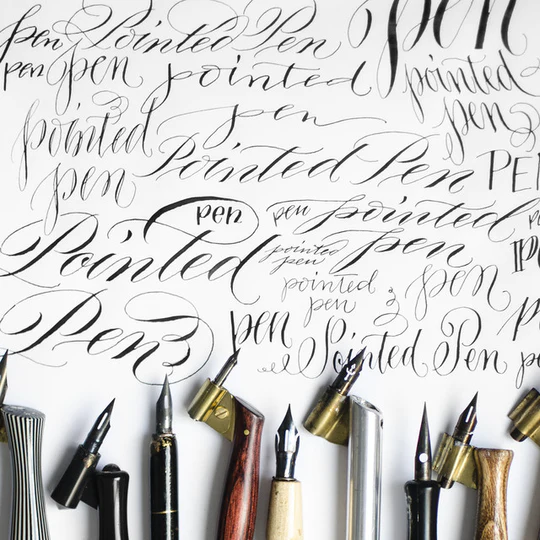 pen Pointed Pen pen
pen pen pointed pointed
pointed pen pen
pen Pointed Pen PEN
pen pen pointed
Pointed pointed pen
pen
pointed pen
pen
Pen pen Pointed Pen